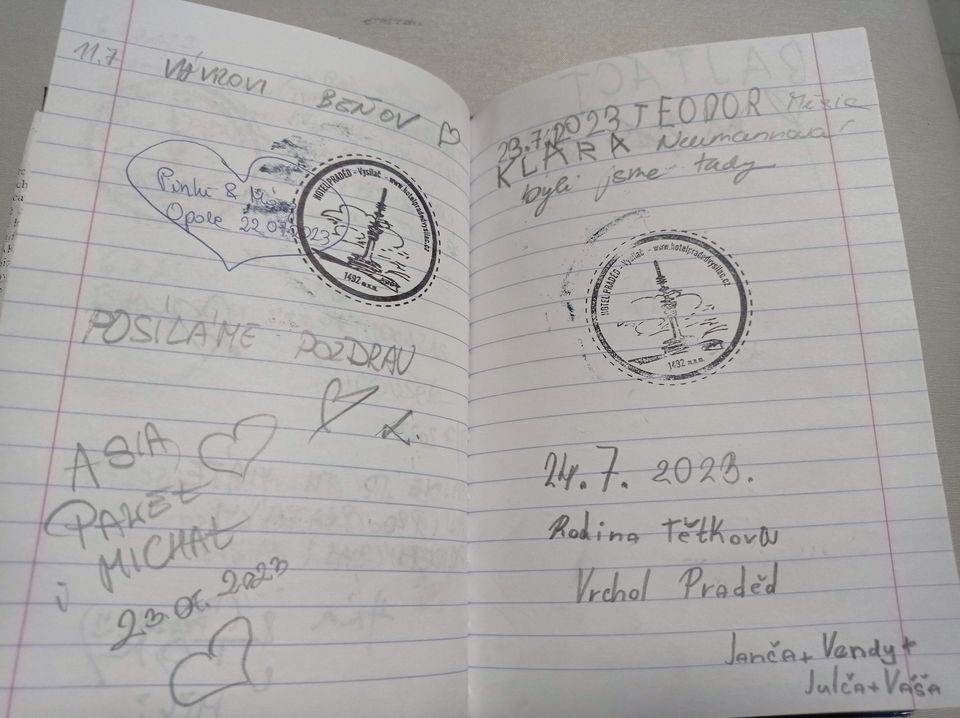 11.7 VÁVROVI
BEŇOV
Punki &
Opole 22.07.2023
HOTEL PRADĚD - Vysílač - www.hotelpradedvysilac.cz
1492 m.n.m.
POSÍLÁME POZDRAV
ASIA
PAWEŁ
MICHAŁ
23.07.2023
23.7.2023 TEODOR
KLÁRA Neumannová
byli jsme tady
HOTEL PRADĚD - Vysílač - www.hotelpradedvysilac.cz
1492 m.n.m.
24.7. 2023.
Rodina Tětkova
Vrchol Praděd
Janča+ Vendy+
Julča+Váša